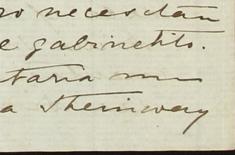 ro necesitan
e gabinetito.
taria un
a Steinway